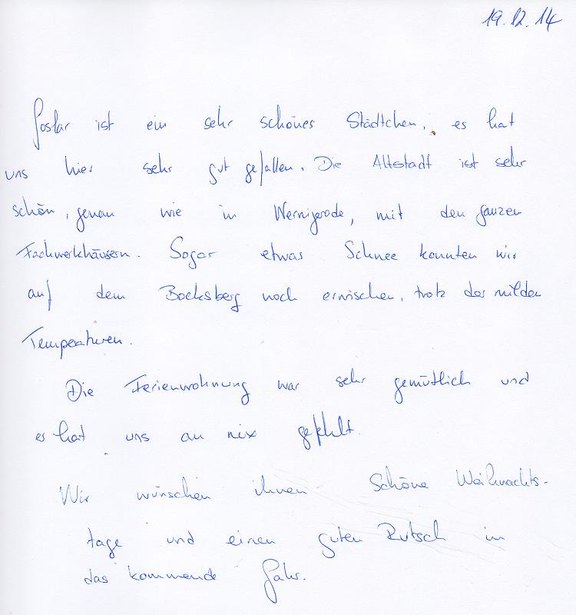 19.12.14
Goslar ist ein sehr schönes Städtchen, es hat
uns hier sehr gut gefallen. Die Altstadt ist sehr
schön, genau wie in Wernigerode, mit den ganzen
Fachwerkhäusern. Sogar etwas Schnee konnten wir
auf dem Bocksberg noch erwischen, trotz der milden
Temperaturen.
Die Ferienwohnung war sehr gemütlich und
es hat uns an nix gefehlt.
Wir wünschen ihnen schöne Weihnachts-
tage und einen guten Rutsch in
das kommende Jahr.